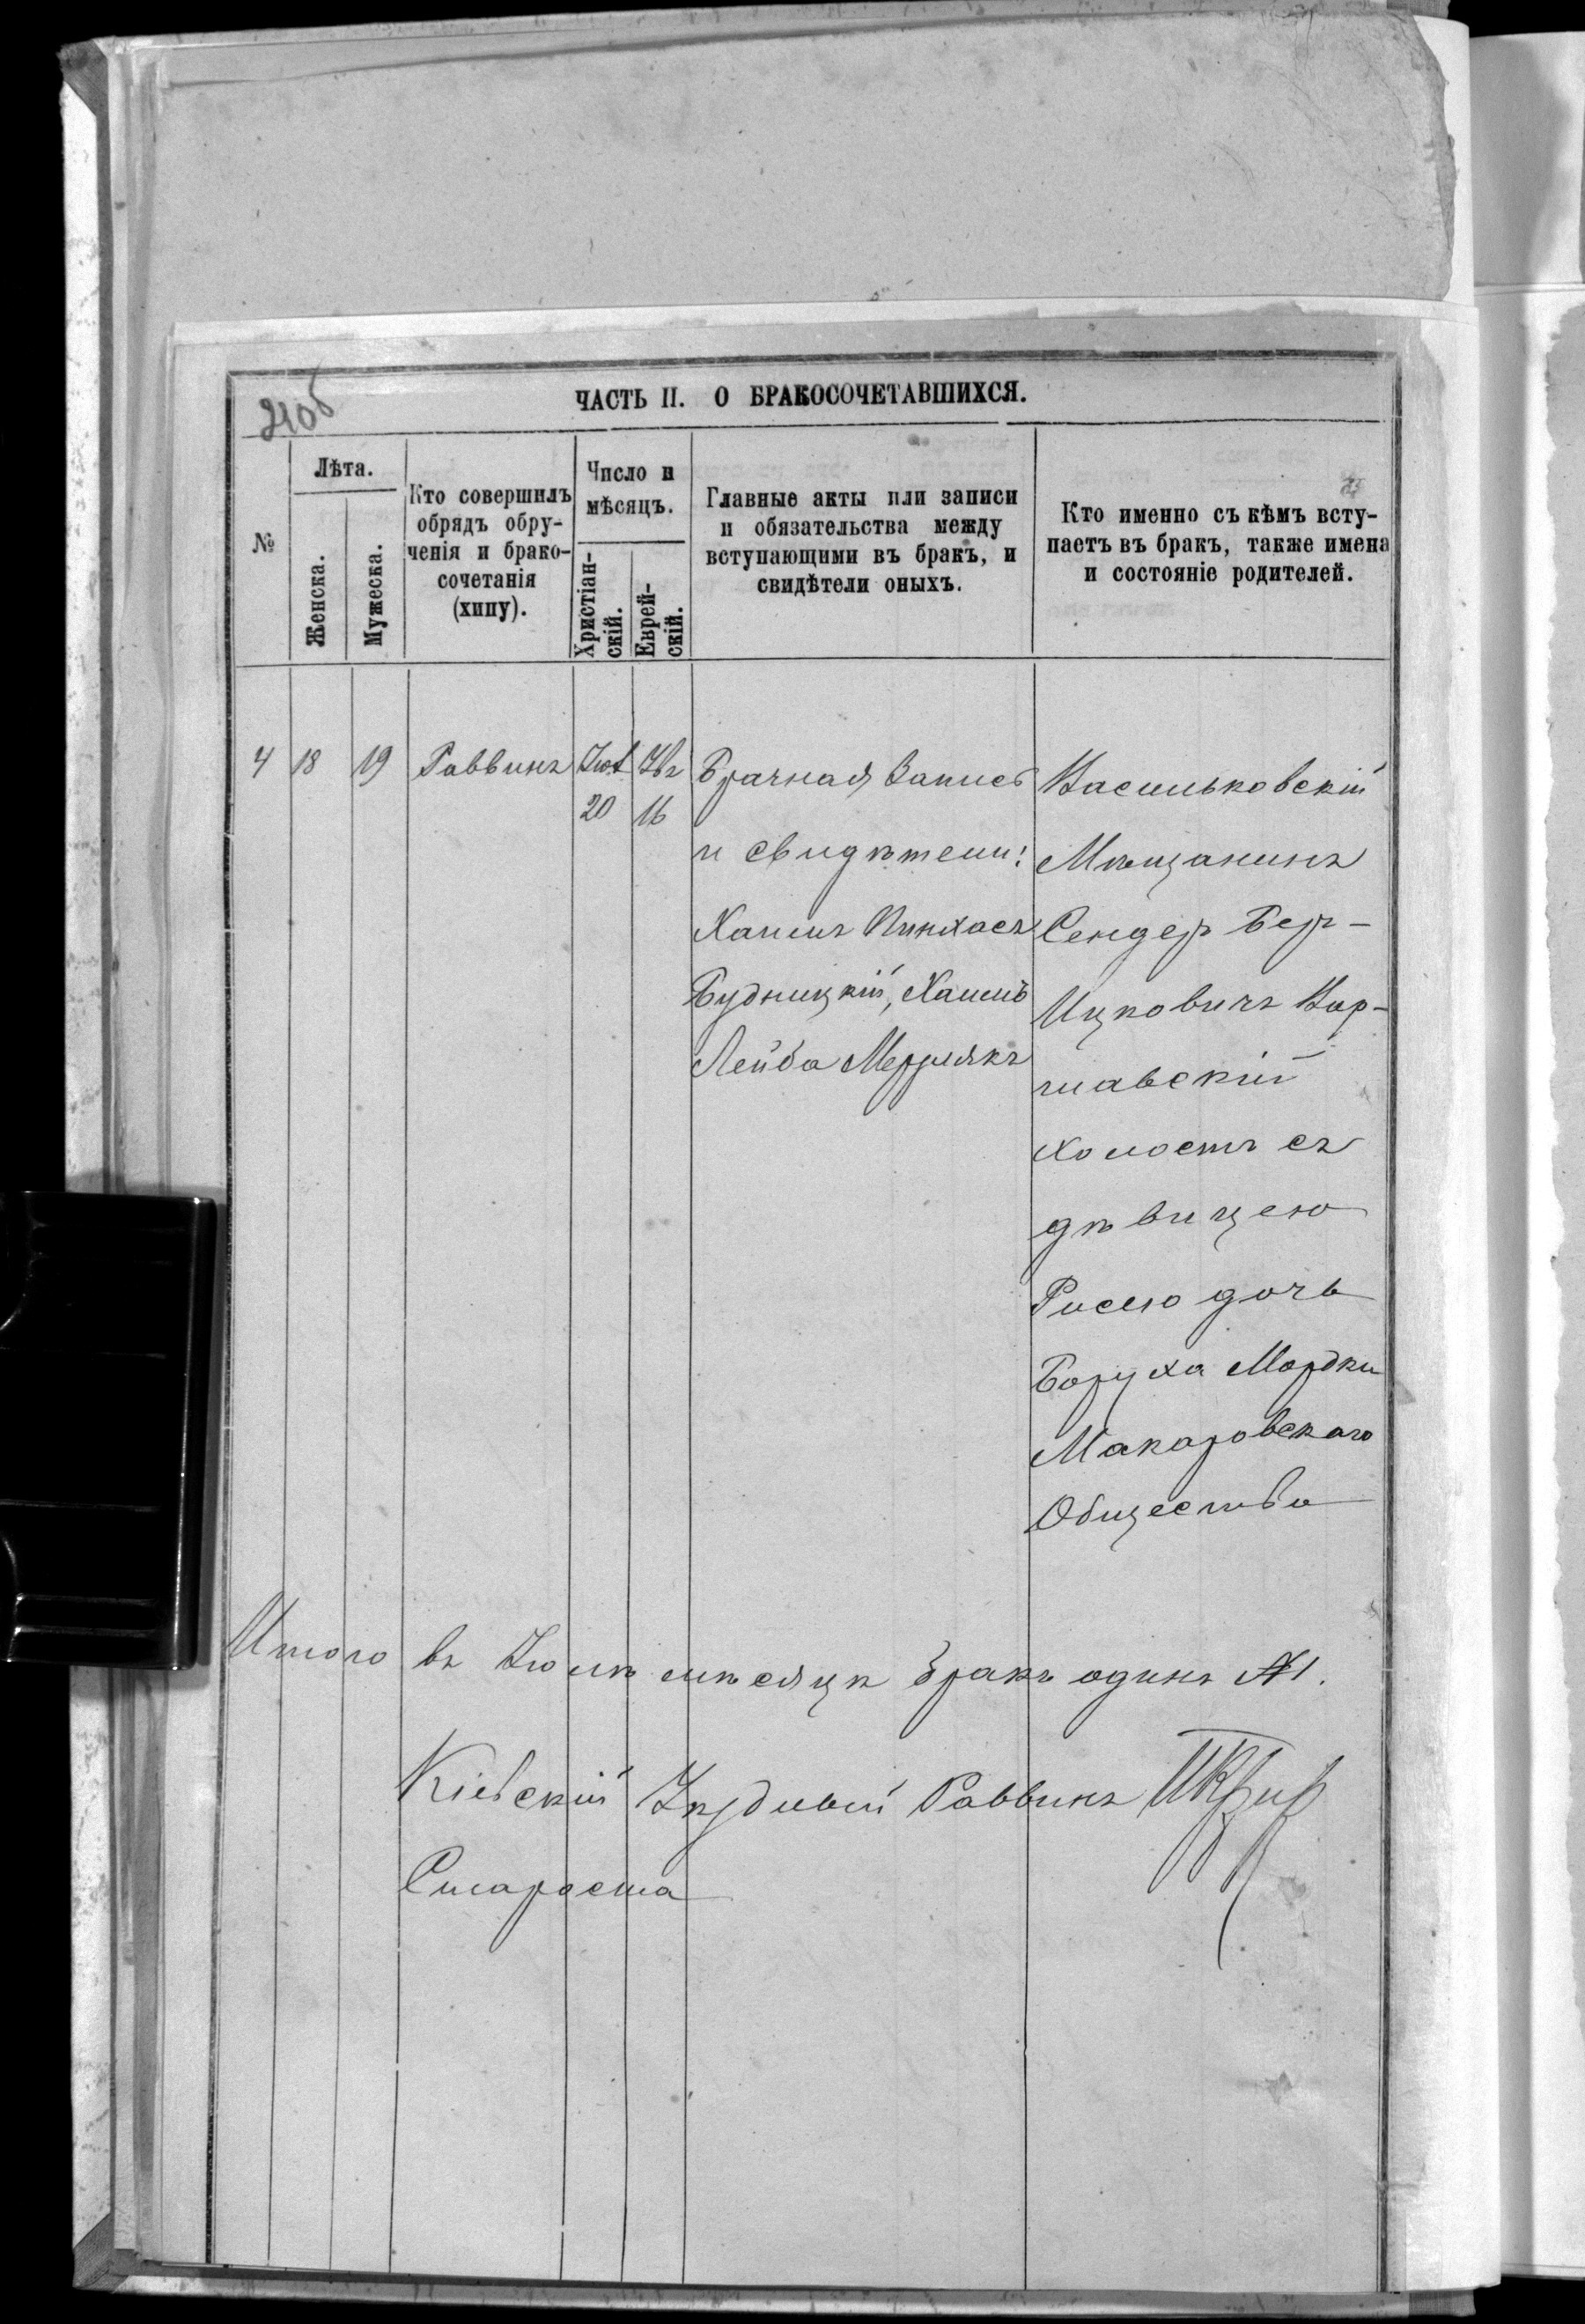 ЧАСТЬ II. О БРАКОСОЧЕТАВШИХСЯ.
№
Лѣта.
Женска.
Мужеска.
Кто совершилъ
обрядъ обру-
ченія и брако-
сочетанія
(хипу).
Число и
мѣсяцъ.
Христіан-
скій.
Еврей-
скій.
Главные акты или записи
и обязательства между
вступающими въ бракъ, и
свидѣтели оныхъ.
Кто именно съ кѣмъ всту-
паетъ въ бракъ, также имена
и состояніе родителей.
4 18 19 Раввинъ
20
16
Брачная Запись
и свидѣтели:
Хаимъ Пинхасъ
Будницкій, Хаимъ
Лейба
Васильковскій
Мѣщанинъ
Сендеръ Бер-
Ицковичъ Вар-
шавскій
холостъ съ
дѣвицею
Рисею дочь
Боруха Мордки
Макаровскаго
Общества
Итого въ Іюлѣ мѣсяцѣ бракъ одинъ №1.
Кіевскій Уѣздный Раввинъ
Староста